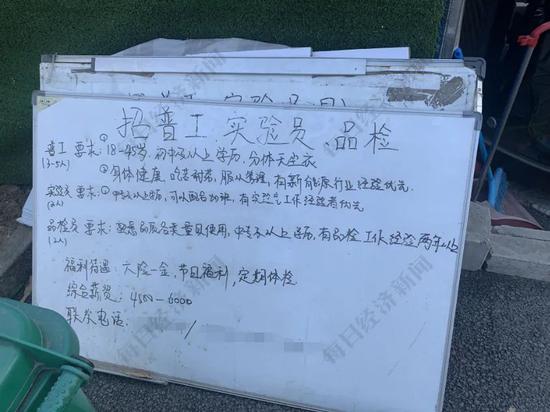 招普工、实验员、品检
普工 要求:① 18-45岁 初中及以上学历, 分体无尘衣
(3-5人) ② 身体健康 吃苦耐劳 服从管理, 有新能源行业经验优先
实验员 要求:① 中专以上学历, 可以配合加班, 有实验室工作经验者优先
(2人)
品检员 要求:熟悉品质各类量具使用, 中专以上学历, 有品检工作经验两年以上
(1人)
福利待遇:六险一金, 节日福利, 定期体检
综合薪资:4500-6000
联系电话:
每日经济新闻
每日经济新闻
每日经济新闻
每日经济新闻